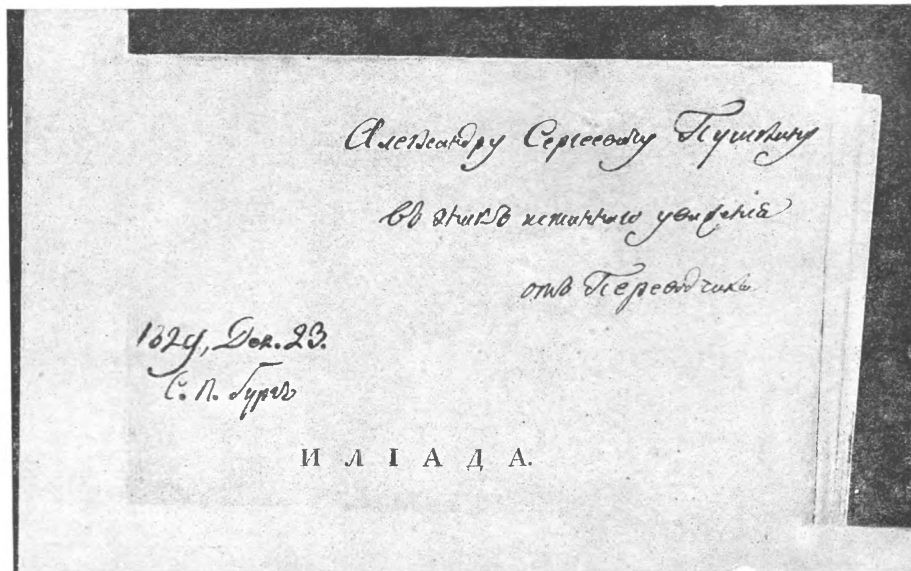 Александру Сергеевичу Пушкину
въ знакъ истиннаго уваженія
отъ Переводчика
1829, Дек. 23.
С. П. бургъ
ИЛІАДА.